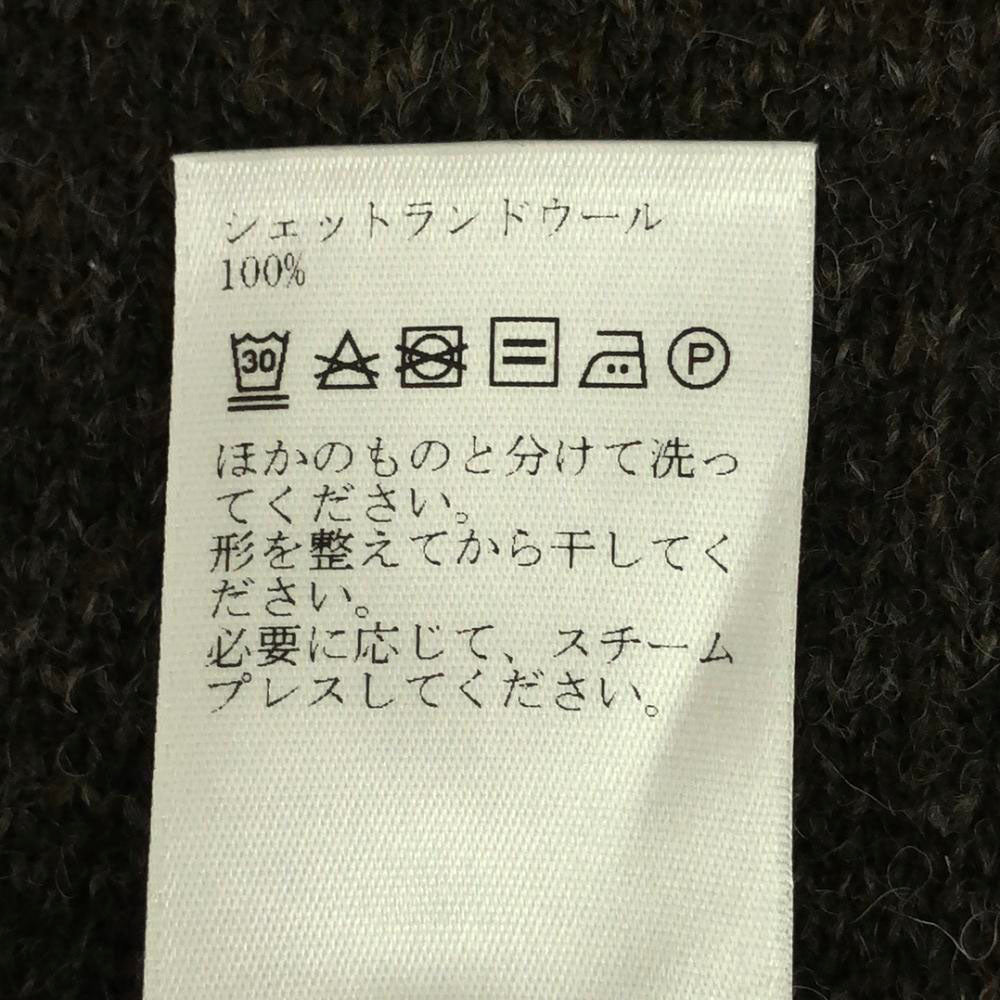 シェットランドウール
100%
30 P
ほかのものと分けて洗っ
てください。
形を整えてから干してく
ださい。
必要に応じて、スチーム
プレスしてください。